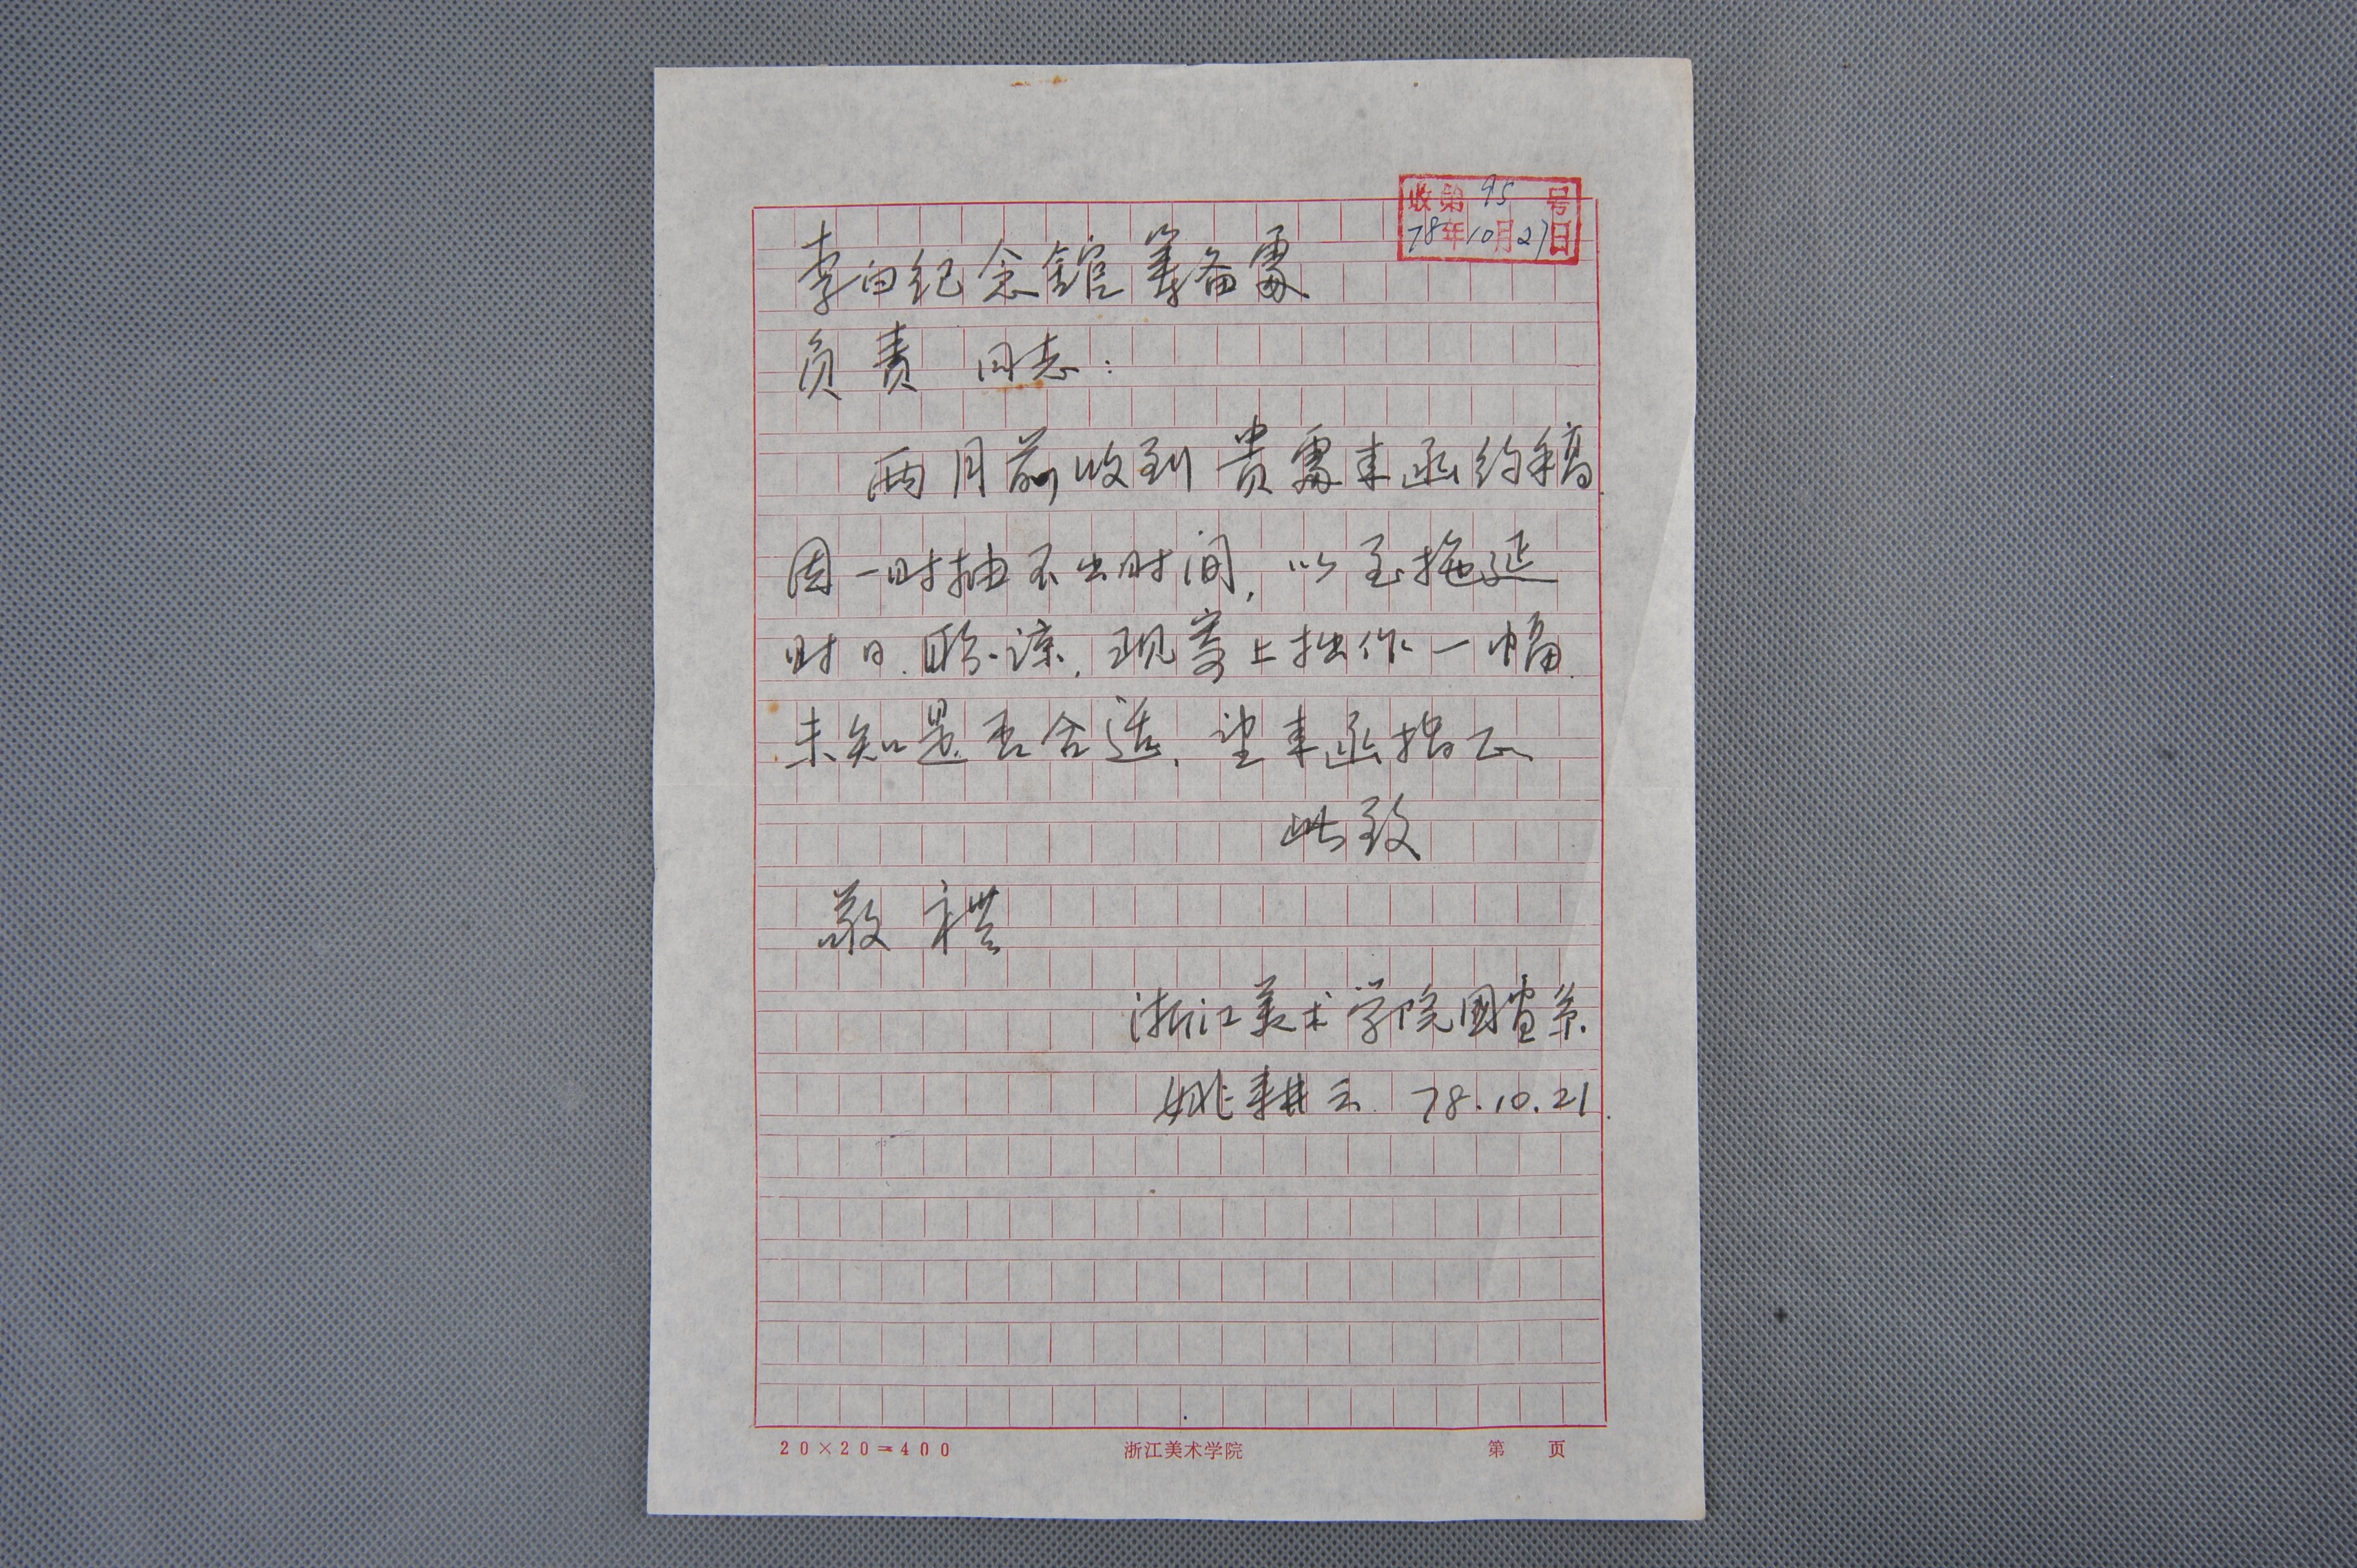 收第95号
78年10月27日
李白纪念舘筹备處
负责 同志:
两月前收到 贵處来函约稿.
因一时抽不出时间,以至拖延
时日.盼谅.现寄上拙作一幅.
未知是否合适,望来函指正
此致
敬礼
浙江美术学院國画系.
姚耕云 78.10.21.
20×20=400 浙江美术学院 第 页